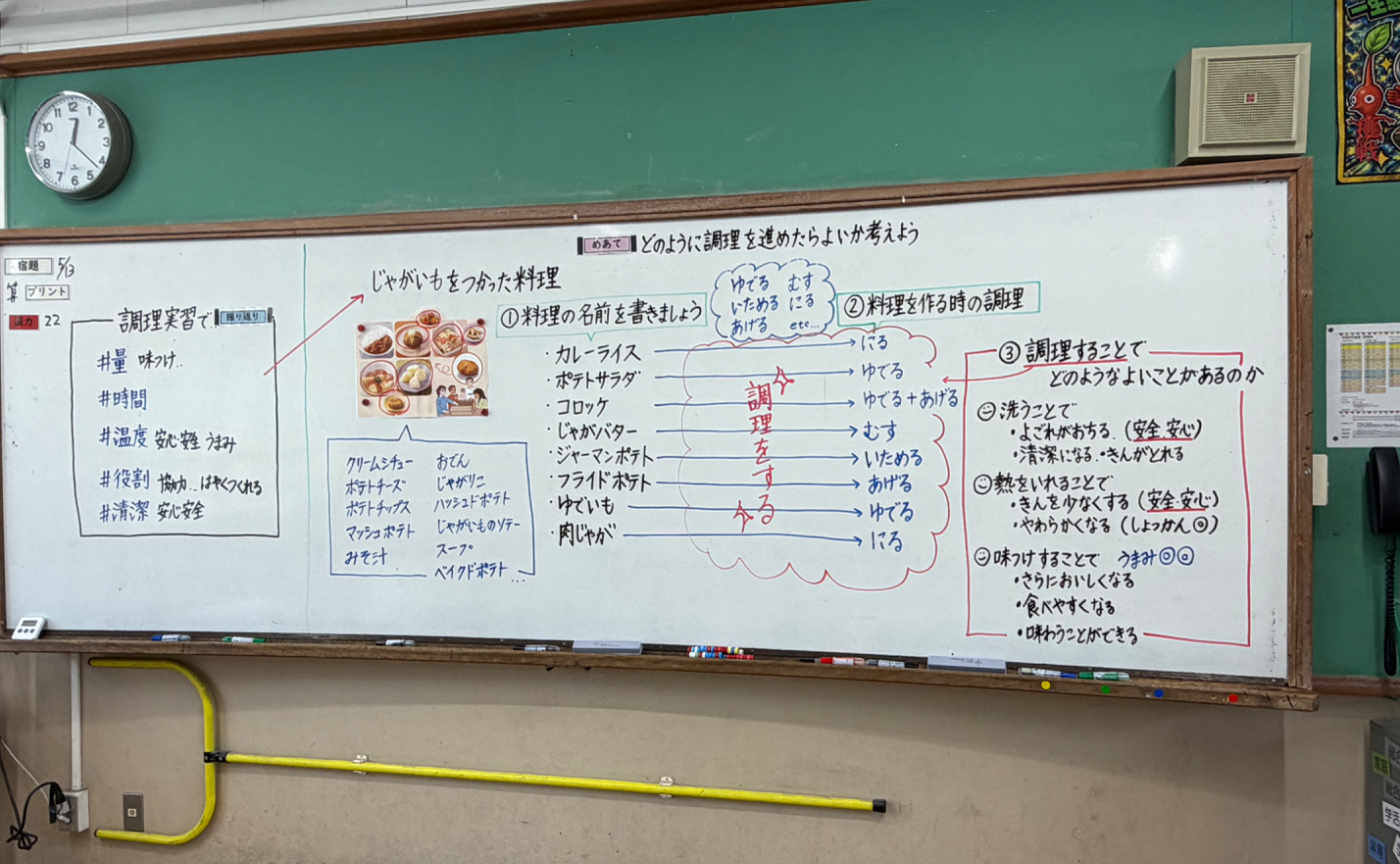 宿題 5/13
算 プリント
22
調理実習で、振り返り
#量 味つけ..
#時間
#温度 安心・安全 うまみ
#役割 協力..はやくつくれる
#清潔 安心安全
めあて どのように調理を進めたらよいか考えよう
じゃがいもをつかった料理
クリームシチュー
ポテトチーズ
ポテトチップス
マッシュポテト
みそ汁
おでん
じゃがりこ
ハッシュドポテト
じゃがいものソテー
スープ
ベイクドポテト...
①料理の名前を書きましょう
・カレーライス
・ポテトサラダ
・コロッケ
・じゃがバター
・ジャーマンポテト
・フライドポテト
・ゆでいも
・肉じゃが
ゆでる むす
いためる にる
あげる etc...
調理をする
②料理を作る時の調理
にる
ゆでる
ゆでる+あげる
むす
いためる
あげる
ゆでる
にる
③調理することで
どのようなよいことがあるのか
洗うことで
・よごれがおちる.(安全.安心)
・清潔になる.・きんがとれる
熱をいれることで
・きんを少なくする(安全.安心)
・やわらかくなる(しょっかん◎)
味つけすることで うまみ◎◎
・さらにおいしくなる
・食べやすくなる
・味わうことができる
12
1
2
3
4
5
6
7
8
9
10
11
挑戦